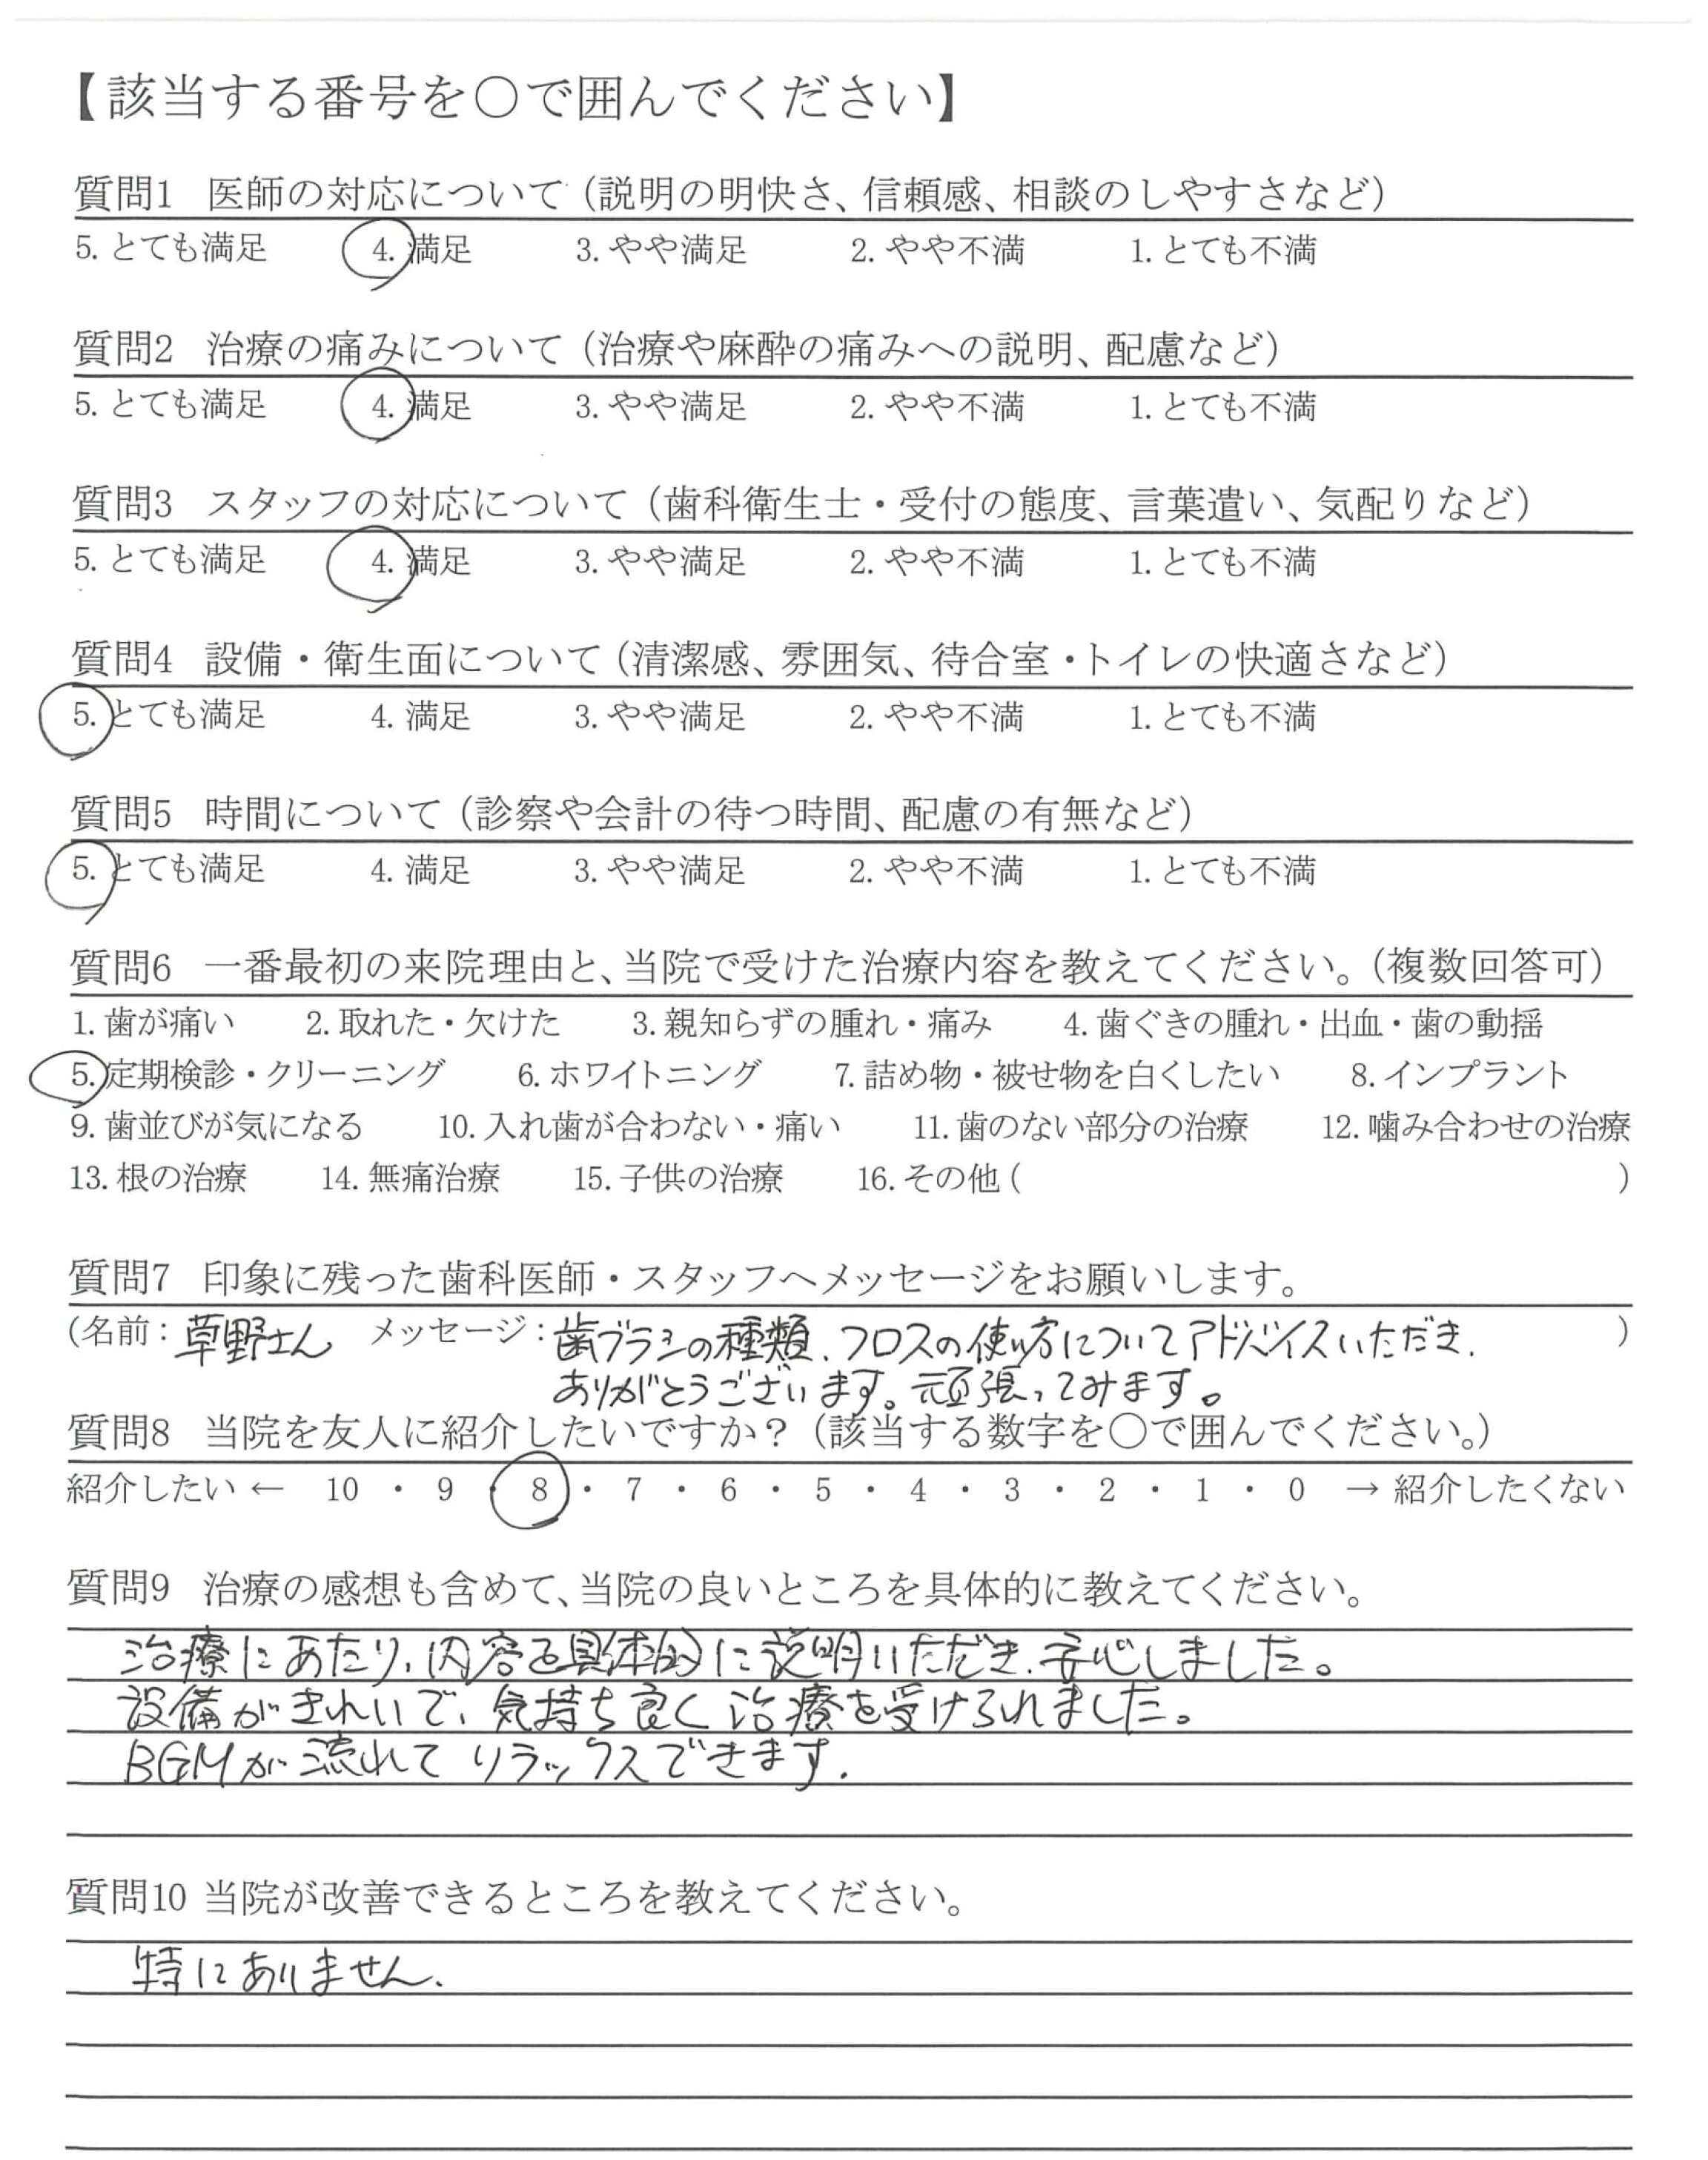 【該当する番号を○で囲んでください】
質問1 医師の対応について（説明の明快さ、信頼感、相談のしやすさなど）
5. とても満足 4. 満足 3. やや満足 2. やや不満 1. とても不満
質問2 治療の痛みについて（治療や麻酔の痛みへの説明、配慮など）
5. とても満足 4. 満足 3. やや満足 2. やや不満 1. とても不満
質問3 スタッフの対応について（歯科衛生士・受付の態度、言葉遣い、気配りなど）
5. とても満足 4. 満足 3. やや満足 2. やや不満 1. とても不満
質問4 設備・衛生面について（清潔感、雰囲気、待合室・トイレの快適さなど）
5. とても満足 4. 満足 3. やや満足 2. やや不満 1. とても不満
質問5 時間について（診察や会計の待つ時間、配慮の有無など）
5. とても満足 4. 満足 3. やや満足 2. やや不満 1. とても不満
質問6 一番最初の来院理由と、当院で受けた治療内容を教えてください。（複数回答可）
1. 歯が痛い 2. 取れた・欠けた 3. 親知らずの腫れ・痛み 4. 歯ぐきの腫れ・出血・歯の動揺
5. 定期検診・クリーニング 6. ホワイトニング 7. 詰め物・被せ物を白くしたい 8. インプラント
9. 歯並びが気になる 10. 入れ歯が合わない・痛い 11. 歯のない部分の治療 12. 噛み合わせの治療
13. 根の治療 14. 無痛治療 15. 子供の治療 16. その他（ ）
質問7 印象に残った歯科医師・スタッフへメッセージをお願いします。
（名前：草野さん メッセージ：歯ブラシの種類、フロスの使い方についてアドバイスいただき、）
ありがとうございます。頑張ってみます。
質問8 当院を友人に紹介したいですか？（該当する数字を○で囲んでください。）
紹介したい ← 10 ・ 9 ・ 8 ・ 7 ・ 6 ・ 5 ・ 4 ・ 3 ・ 2 ・ 1 ・ 0 → 紹介したくない
質問9 治療の感想も含めて、当院の良いところを具体的に教えてください。
治療にあたり、内容を具体的に説明いただき、安心しました。
設備がきれいで、気持ち良く治療を受けられました。
BGMが流れてリラックスできます.
質問10 当院が改善できるところを教えてください。
特にありません.